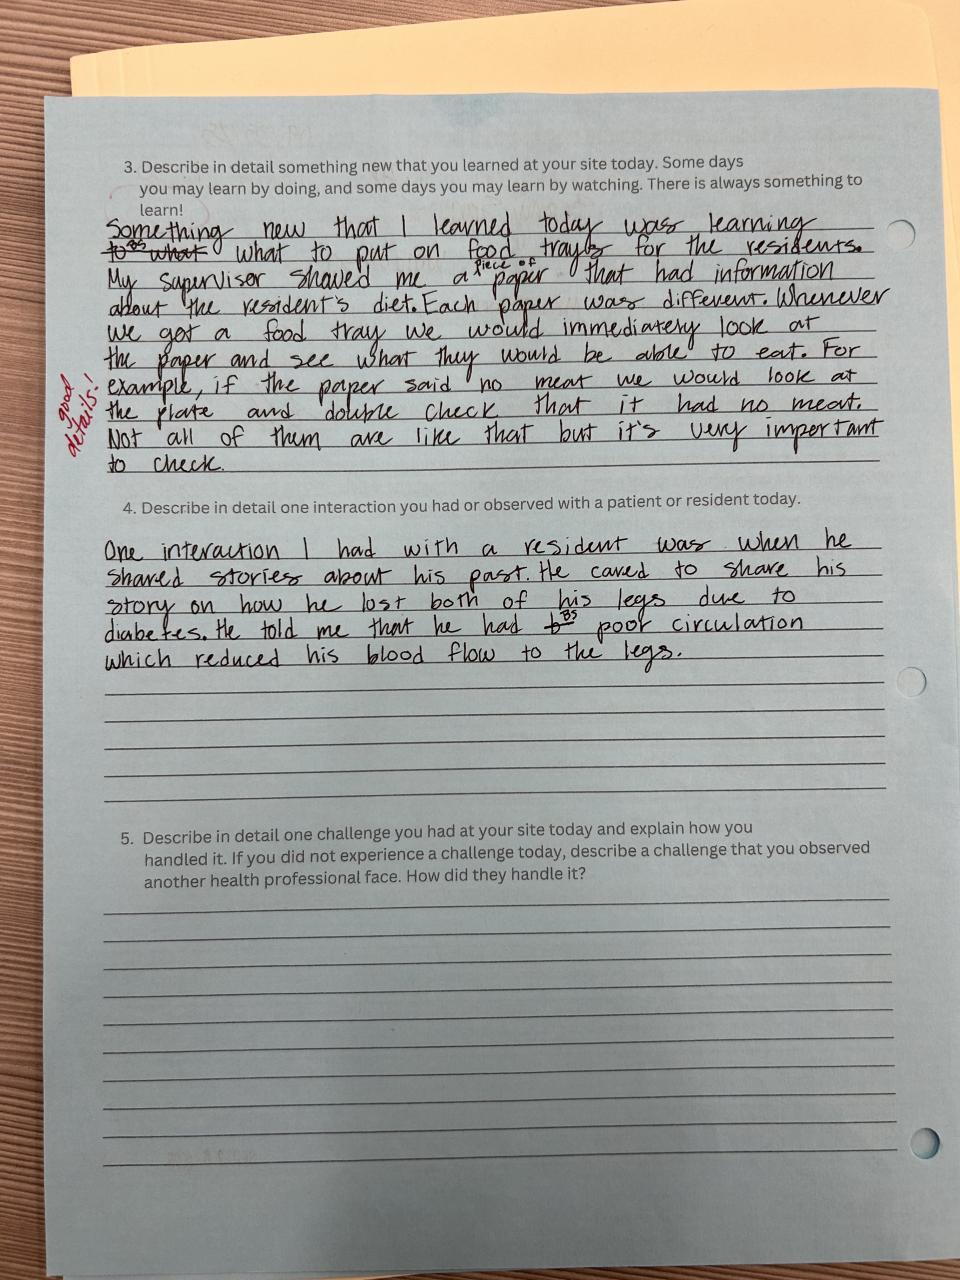 3. Describe in detail something new that you learned at your site today. Some days
you may learn by doing, and some days you may learn by watching. There is always something to
learn!
Something new that I learned today was learning
to BS what what to put on food trays for the residents.
My supervisor showed me a piece of paper that had information
about the resident's diet. Each paper was different. Whenever
we got a food tray we would immediately look at
the paper and see what they would be able to eat. For
example, if the paper said no meat we would look at
the plate and double check that it had no meat.
Not all of them are like that but it's very important
to check.
good
details!
4. Describe in detail one interaction you had or observed with a patient or resident today.
One interaction I had with a resident was when he
shared stories about his past. He cared to share his
story on how he lost both of his legs due to
diabetes. He told me that he had b BS poor circulation
which reduced his blood flow to the legs.
5. Describe in detail one challenge you had at your site today and explain how you
handled it. If you did not experience a challenge today, describe a challenge that you observed
another health professional face. How did they handle it?